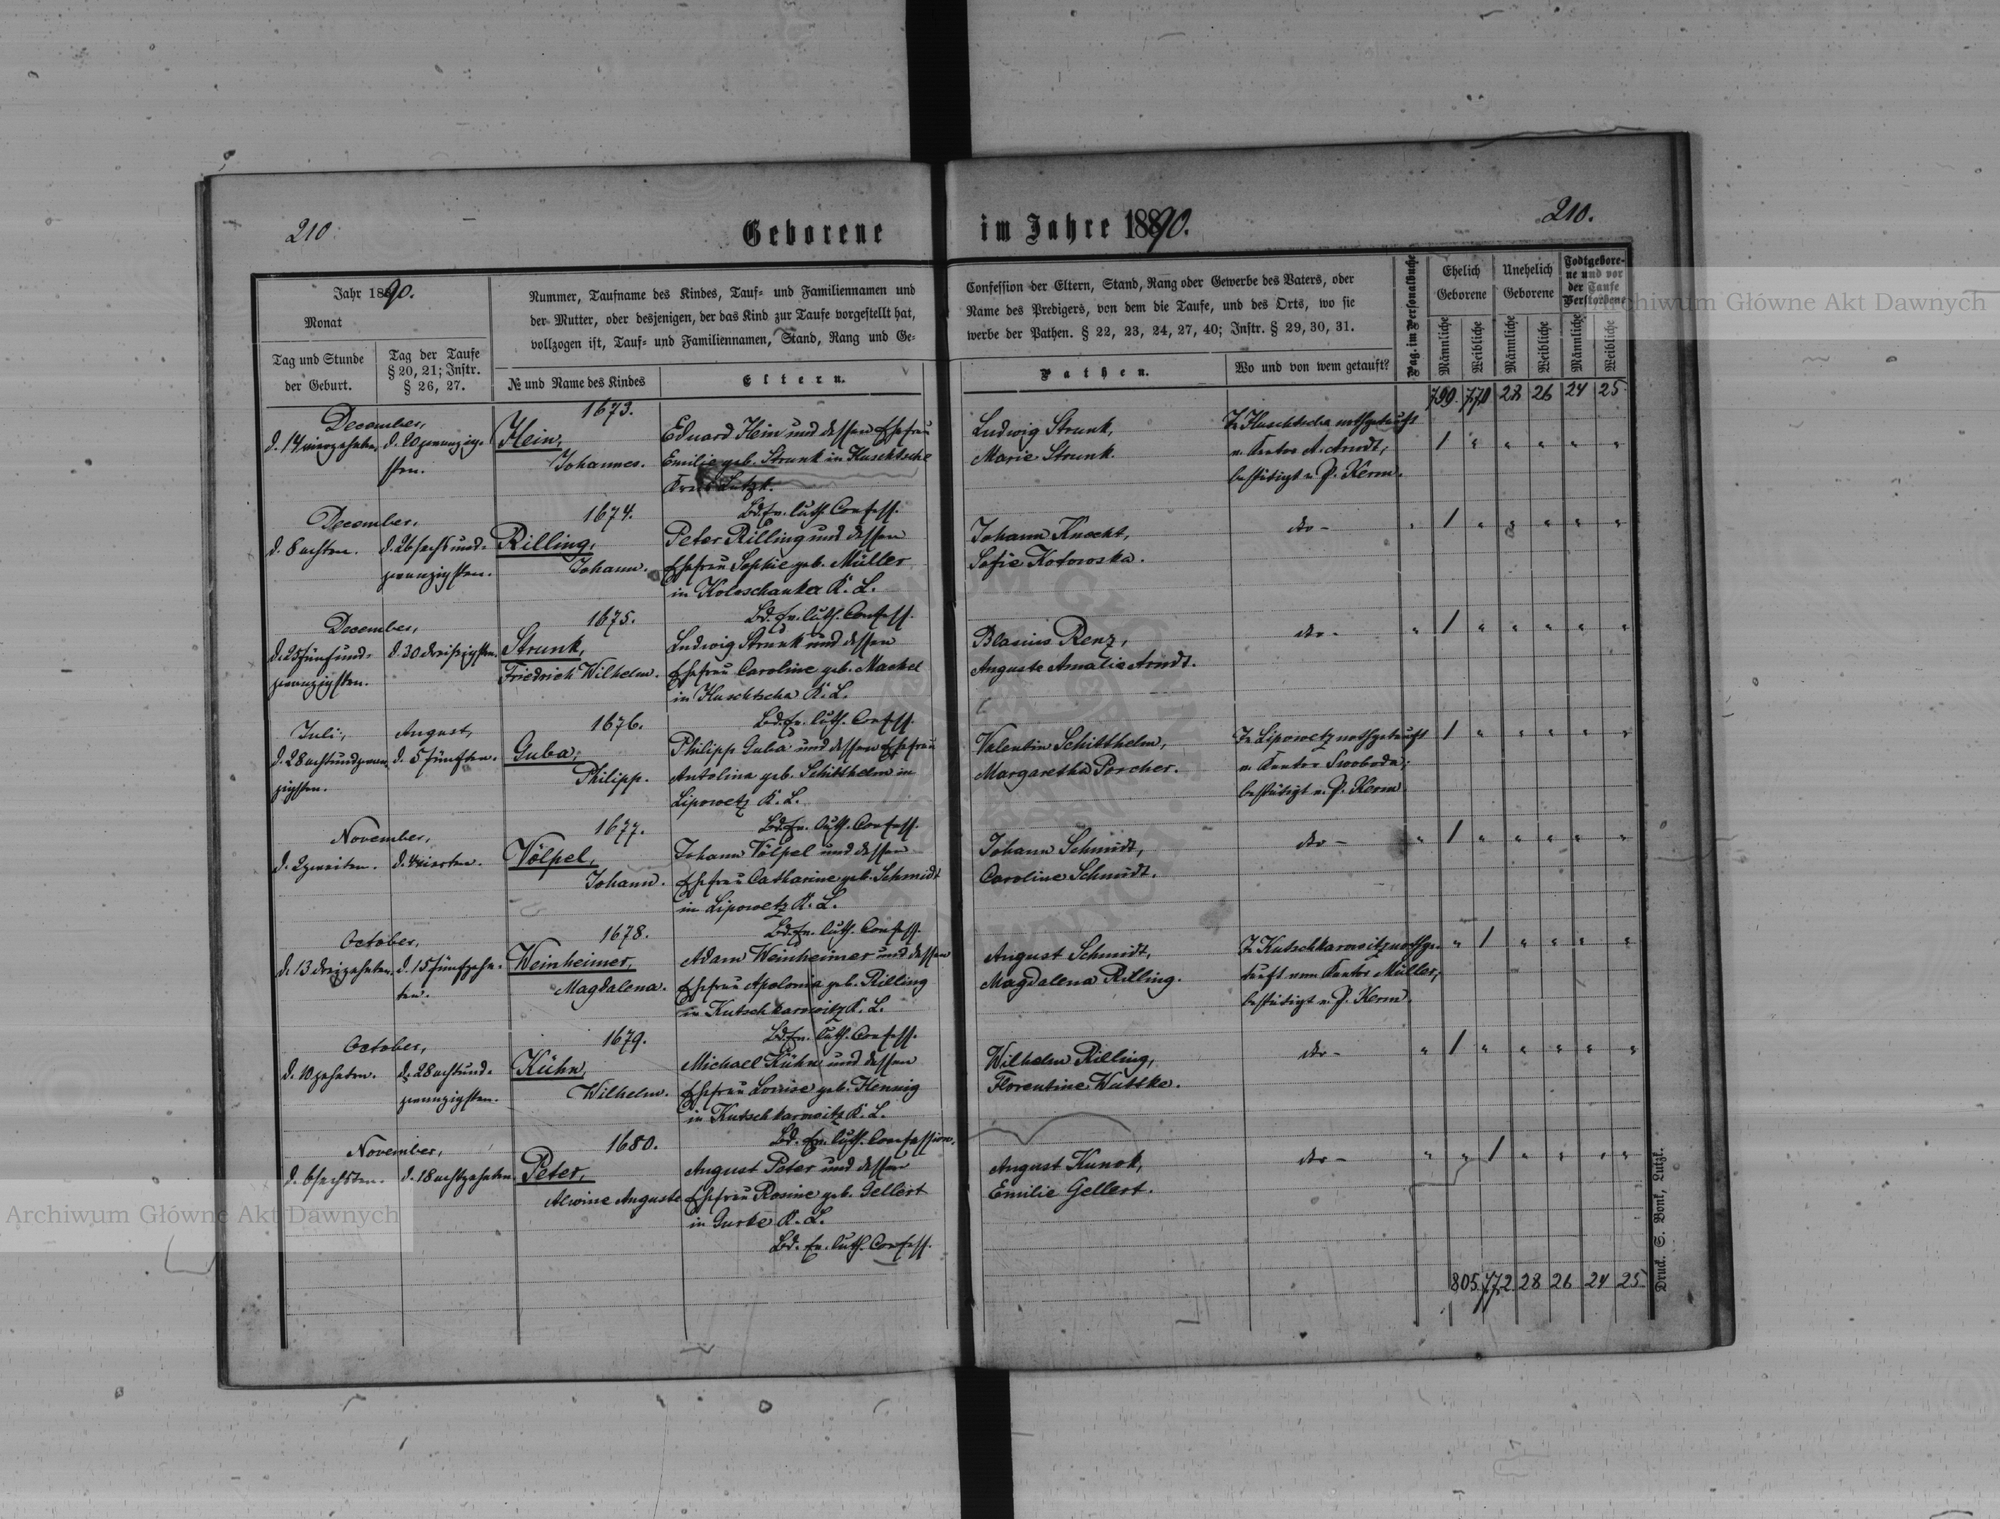 210
Geborene
im Jahre 1890.
210.
Jahr 1890.
Monat
Tag und Stunde
der Geburt.
Tag der Taufe
§ 20, 21; Instr.
§ 26, 27.
Nummer, Taufname des Kindes, Tauf- und Familiennamen und
der Mutter, oder desjenigen, der das Kind zur Taufe vorgestellt hat,
vollzogen ist, Tauf- und Familiennamen, Stand, Rang und Ge-
№ und Name des Kindes
Eltern.
Confession der Eltern, Stand, Rang oder Gewerbe des Vaters, oder
Name des Predigers, von dem die Taufe, und des Orts, wo sie
werbe der Pathen. § 22, 23, 24, 27, 40; Instr. § 29, 30, 31.
Pathen.
Wo und von wem getauft?
Pag. im Personalbuche
Ehelich
Geborene
Unehelich
Geborene
Todtgebore-
ne und vor
der Taufe
Verstorbene
Männliche
Weibliche
Männliche
Weibliche
Männliche
Weibliche
799. 770 28 26 24 25.
December,
d. 14 vierzehnten
d. 20 zwanzig-
sten.
1673.
Hein,
Johannes.
Eduard Hein und dessen Ehefrau
Emilie geb. Strunk in Huschtscha
Kreis Lutzk.
Bd. Ev. Luth. Confess.
Ludwig Strunk,
Marie Strunk.
In Huschtscha nothgetauft
v. Kantor A. Arndt,
bestätigt v. P. Kerm.
1 " " " " "
December,
d. 8 achten.
d. 26 sechsund-
zwanzigsten.
1674.
Rilling,
Johann.
Peter Rilling und dessen
Ehefrau Sophie geb. Müller
in Koloschanka K. L.
Bd. Ev. Luth. Confess.
Johann Knecht,
Sofie Kotowska.
dto -
" 1 " " " " "
December,
d. 25 fünfund-
zwanzigsten.
d. 30 dreißigsten.
1675.
Strunk,
Friedrich Wilhelm.
Ludwig Strunk und dessen
Ehefrau Caroline geb. Mackel
in Huschtscha K. L.
Bd. Ev. Luth. Confess.
Blasius Renz,
Auguste Amalie Arndt.
dto -
" 1 " " " " "
Juli,
d. 28 achtundzwan-
zigsten.
August,
d. 5 fünften.
1676.
Guba,
Philipp.
Philipp Guba und dessen Ehefrau
Antolina geb. Schitthelm in
Lipowetz K. L.
Bd. Ev. Luth. Confess.
Valentin Schitthelm,
Margaretha Porcher.
In Lipowetz nothgetauft
v. Kantor Swoboda;
bestätigt v. P. Kerm
1 " " " " "
November,
d. 2 zweiten.
d. 4 vierten.
1677.
Völpel,
Johann.
Johann Völpel und dessen
Ehefrau Catharine geb. Schmidt
in Lipowetz K. L.
Bd. Ev. Luth. Confess.
Johann Schmidt,
Caroline Schmidt.
dto -
" 1 " " " " "
October,
d. 13 dreizehnten
d. 15 fünfzehn-
ten.
1678.
Weinheimer,
Magdalena.
Adam Weinheimer und dessen
Ehefrau Apolonia geb. Rilling
in Kutschkarowitz K. L.
Bd. Ev. Luth. Confess.
August Schmidt,
Magdalena Rilling.
In Kutschkarowitz nothge-
tauft vom Kantor Müller,
bestätigt v. P. Kerm
" 1 " " " "
October,
d. 10 zehnten.
d. 28 achtund-
zwanzigsten.
1679.
Kühn,
Wilhelm.
Michael Kühn und dessen
Ehefrau Louise geb. Hennig
in Kutschkarowitz K. L.
Bd. Ev. Luth. Confession.
Wilhelm Rilling,
Florentine Wuttke.
dto -
" 1 " " " " "
November,
d. 6 sechsten.
d. 18 achtzehnten.
1680.
Peter,
Alwine Auguste
August Peter und dessen
Ehefrau Rosine geb. Gellert
in Gurke K. L.
Bd. Ev. Luth. Confess.
August Kunok,
Emilie Gellert.
dto -
" " 1 " " " "
805. 772 28 26 24 25.
Druck. S. Bonk, Lutzk.
Archiwum Główne Akt Dawnych
Archiwum Główne Akt Dawnych